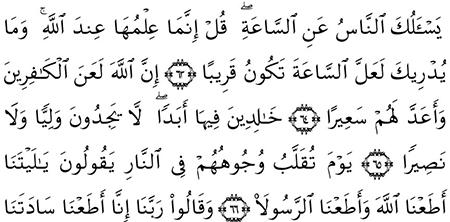 يَسْـَٔلُكَ ٱلنَّاسُ عَنِ ٱلسَّاعَةِۖ قُلْ إِنَّمَا عِلْمُهَا عِندَ ٱللَّهِۚ وَمَا
يُدْرِيكَ لَعَلَّ ٱلسَّاعَةَ تَكُونُ قَرِيبًا ﴿٦٣﴾ إِنَّ ٱللَّهَ لَعَنَ ٱلْكَـٰفِرِينَ
وَأَعَدَّ لَهُمْ سَعِيرًا ﴿٦٤﴾ خَـٰلِدِينَ فِيهَآ أَبَدًاۖ لَّا يَجِدُونَ وَلِيًّا وَلَا
نَصِيرًا ﴿٦٥﴾ يَوْمَ تُقَلَّبُ وُجُوهُهُمْ فِى ٱلنَّارِ يَقُولُونَ يَـٰلَيْتَنَآ
أَطَعْنَا ٱللَّهَ وَأَطَعْنَا ٱلرَّسُولَا۠ ﴿٦٦﴾ وَقَالُوا۟ رَبَّنَآ إِنَّآ أَطَعْنَا سَادَتَنَا